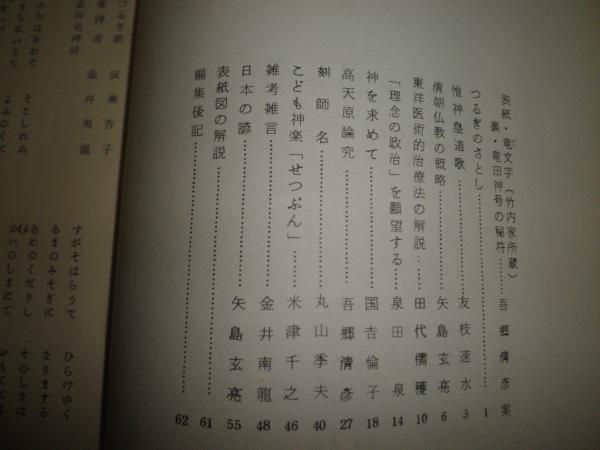 表紙・竜文字（竹内家所蔵）
裏・竜田神号の秘符……吾郷清彦案
つるぎのさとし……1
惟神皇道歌……友枝速水 3
清朝仏教の概略……矢島玄亮 6
東洋医術的治療法の解説……田代儒穫 10
「理念の政治」を願望する……泉田泉 14
神を求めて……国吉倫子 18
高天原論究……吾郷清彦 27
刻師名……丸山季夫 40
こども神楽「せつぶん」……米津千之 46
雑考雑言……金井南龍 48
日本の諺……矢島玄亮 55
表紙図の解説……61
編集後記……62
ひらけゆく
なりまする
そのしまは
すがそはらうて
あまのみそぎに
あめのくだりし
かいのしまにて
そこしれぬ
よみのくに
つるぎ
成瀬杏子
審神者
金井南龍